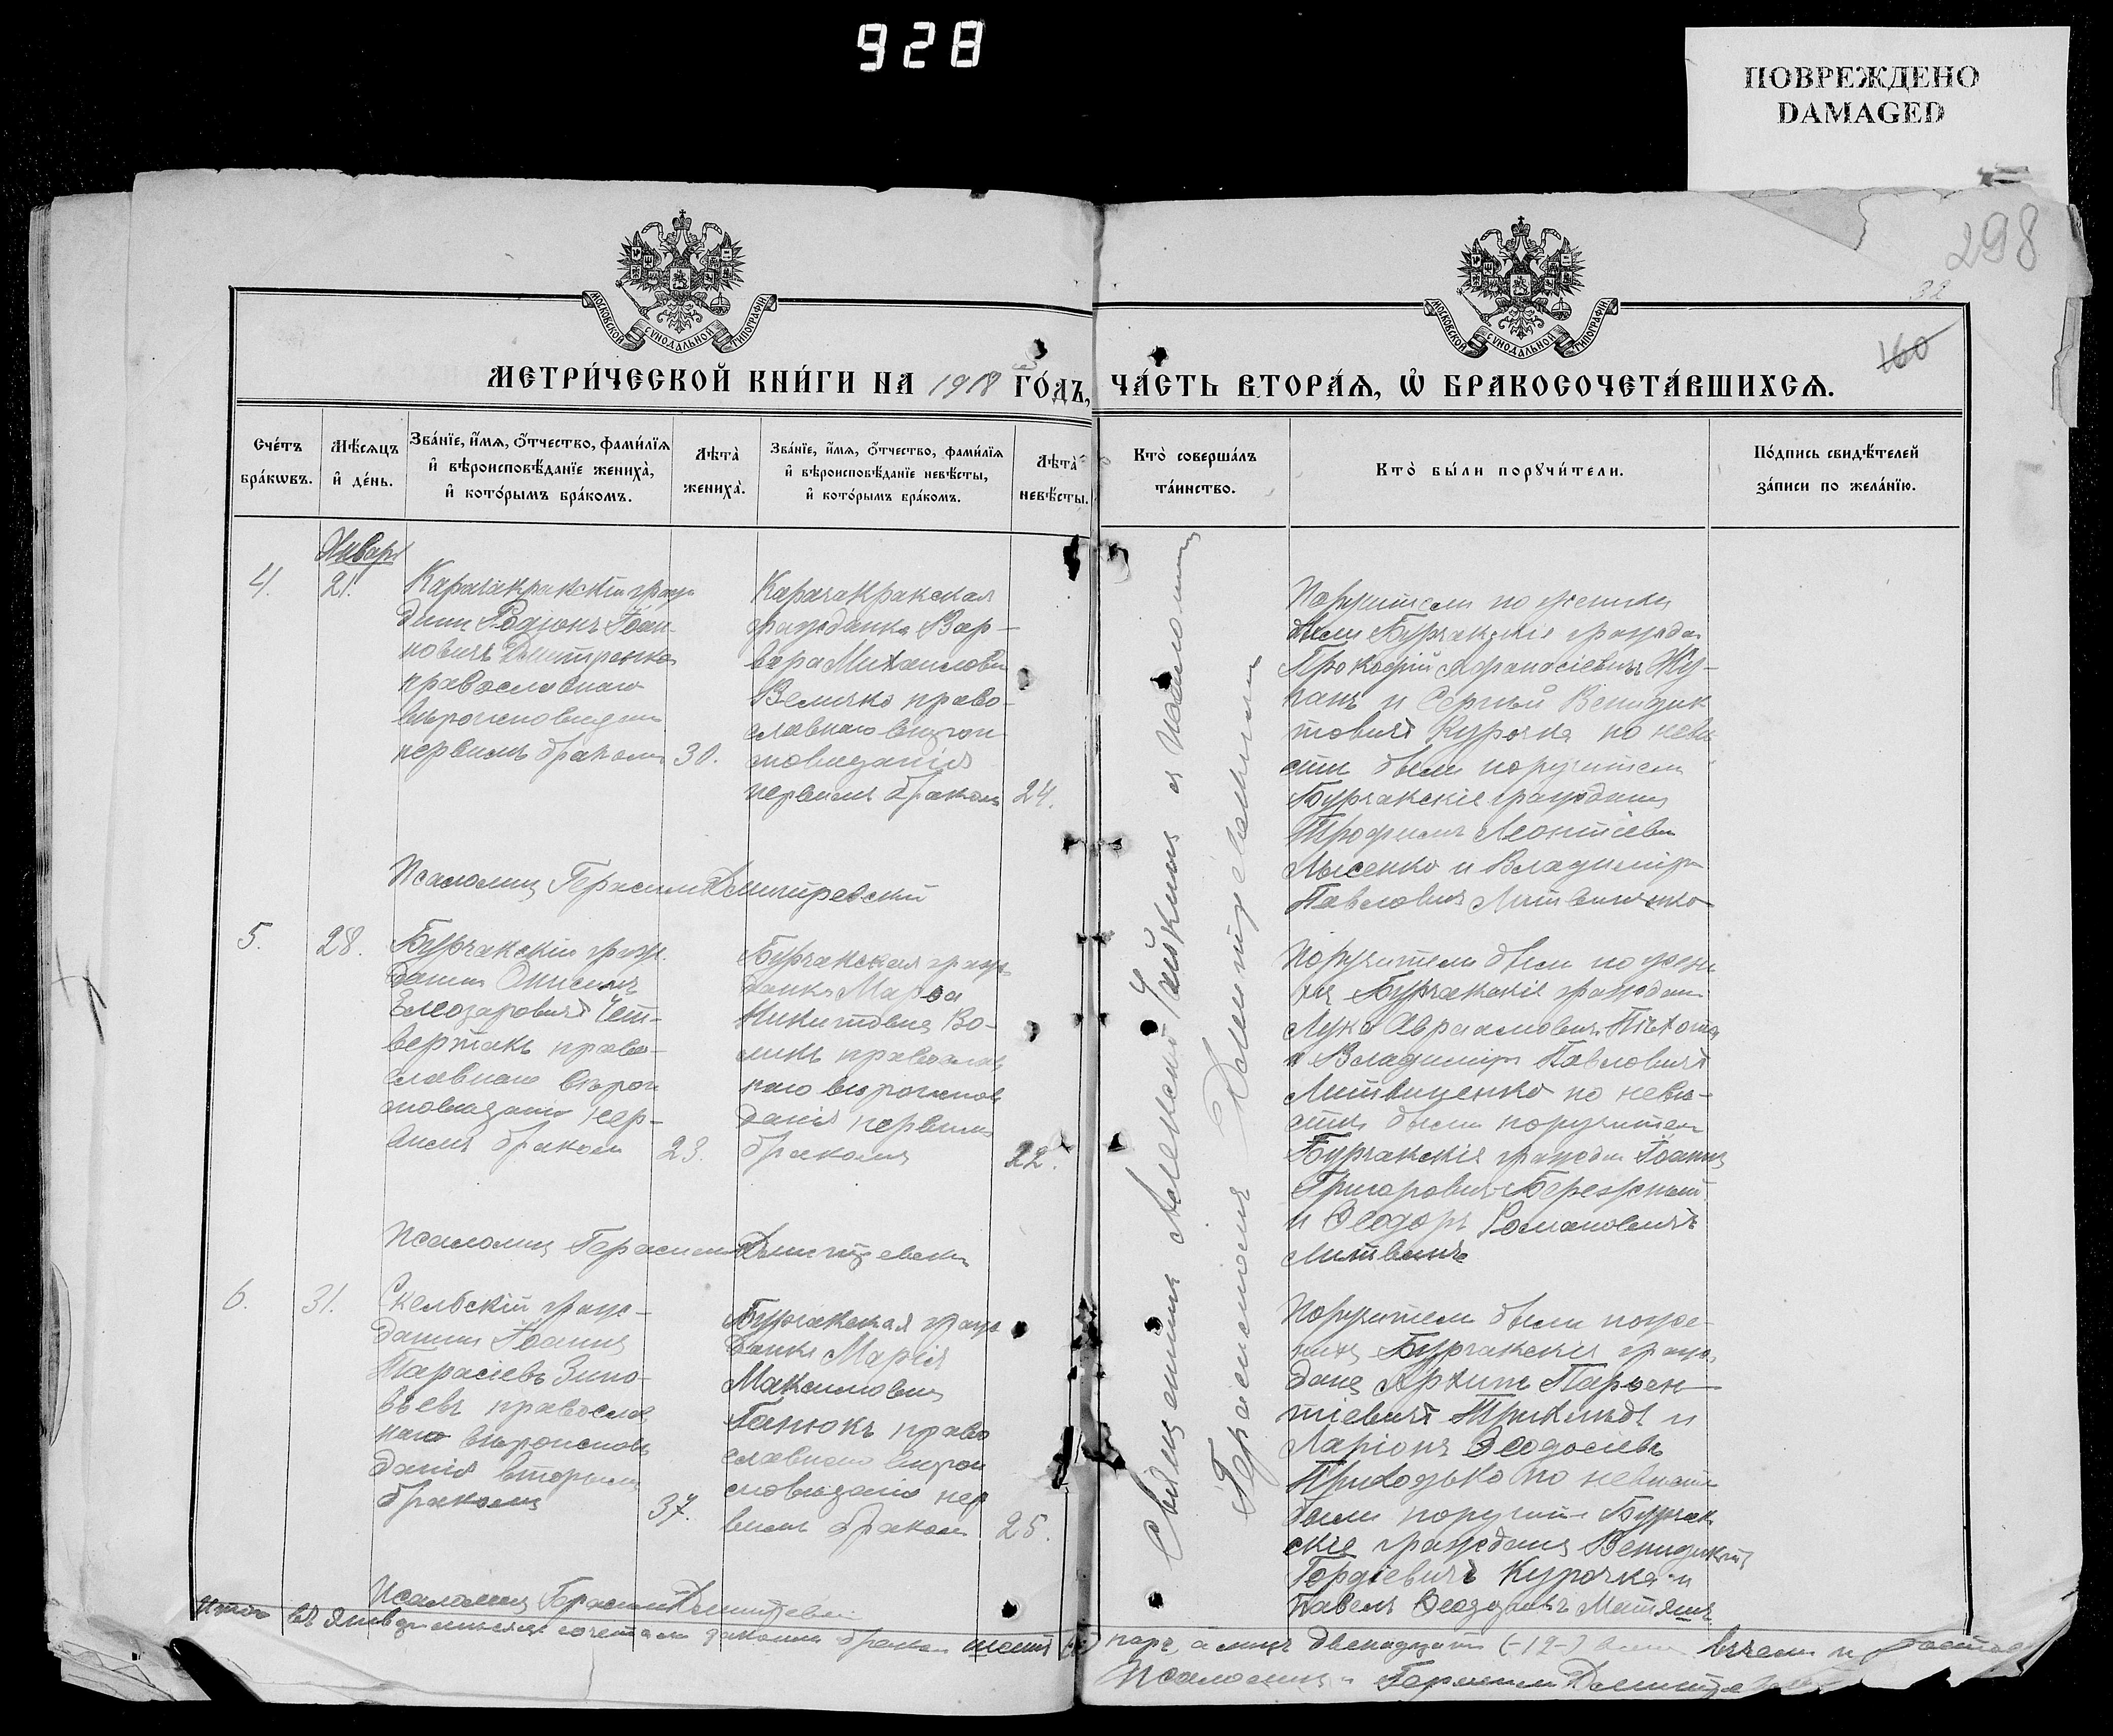 928
ПОВРЕЖДЕНО
DAMAGED
298
32
160
МОСКОВСКОЙ СѴНОДАЛЬНОЙ ТИПОГРАФІИ
МОСКОВСКОЙ СѴНОДАЛЬНОЙ ТИПОГРАФІИ
МЕТРИ́ЧЕСКОЙ КНИ́ГИ НА 1918 ГО́ДЪ, ЧА́СТЬ ВТОРА́Ѧ, Ѽ БРАКОСОЧЕТА́ВШИХСѦ.
Сче́тъ
бра́кѡвъ.
Мѣ́сѧцъ
и҆ де́нь.
Зва́нїе, и҆́мѧ, ѻ҆́тчество, фами́лїѧ
и҆ вѣроисповѣ́данїе жениха̀,
и҆ кото́рымъ бра́комъ.
Лѣта̀
жениха̀.
Зва́нїе, и҆́мѧ, ѻ҆́тчество, фами́лїѧ
и҆ вѣроисповѣ́данїе невѣ́сты,
и҆ кото́рымъ бра́комъ.
Лѣта̀
невѣ́сты.
Кто̀ соверша́лъ
та́инство.
Кто̀ бы́ли порꙋчи́тели.
По́дпись свидѣ́телей
за́писи по жела́нїю.
Январь
4.
21.
Карачакракскій граж
данин Родіонъ Іоан-
новичъ Дмитренко
православнаго
вѣроисповѣдан
первымъ бракомъ
30.
Карачакракская
гражданка Вар-
вара Михаиловн
Величко право-
славнаго вѣрои
сповѣданія
первымъ бракомъ
24.
Поручители по жениху
были Бурчакскіе граждан
Прокофій Афанасіевичъ Жу-
панъ и Сергѣй Венидик
товичъ Курочка по невѣ
стѣ были поручители
Бурчакскіе граждани
Трофимъ Леонтіеви
Лысенко и Владиміръ
Павловичъ Литвиненко
Псаломщ Герасим Дмитревскій
5.
28.
Бурчакскій граж.
данин Онисимъ
Елеозаровичъ Чет-
вертакъ право-
славнаго вѣрои
сповѣданія пер-
вымъ браком
23.
Бурчакская граж
данка Марѳа
Никитовна Во-
ликъ православ
наго вѣроисповѣ
данія первымъ
бракомъ
22.
Поручители были по жени
ху Бурчакскіе граждан
Лука Авраамовичъ Пѣхота
и Владиміръ Павловичъ
Литвиненко по невѣ-
стѣ были поручители
Бурчакскіе граждан Іоаннъ
Григоровичъ Бережный
и Ѳеодоръ Романовичъ
Литвинъ
Псаломщ Герасимъ Дмитревскі
6.
31.
Скельскій граж-
данин Іоаннъ
Тарасіевъ Зино-
вьевъ православ
наго вѣроисповѣ
данія вторымъ
бракомъ
37.
Бурчакская граж
данка Марія
Максимовна
Ганюкъ право
славнаго вѣрои
сповѣданія пер
вымъ браком
25.
Поручители были по же-
ниху Бурчакскіе граж.
дане Архипъ Парѳен-
тіевичъ и
Ларіонъ Ѳеодосіевъ
Приходько по невѣстѣ
были поручит Бурчак
скіе граждани Венидиктъ
Гордіевичъ Курочка и
Павелъ Матяшъ
Псаломщ Герасим Дмитревскі
Священникъ Чайкинъ и псаломщ
Герасимомъ
Итого въ Январѣ мѣсяцѣ сочетали законн бракомъ шесть (6) паръ, а лицъ двенадцать (-12-)
Псаломщикъ Герасим Дмитре